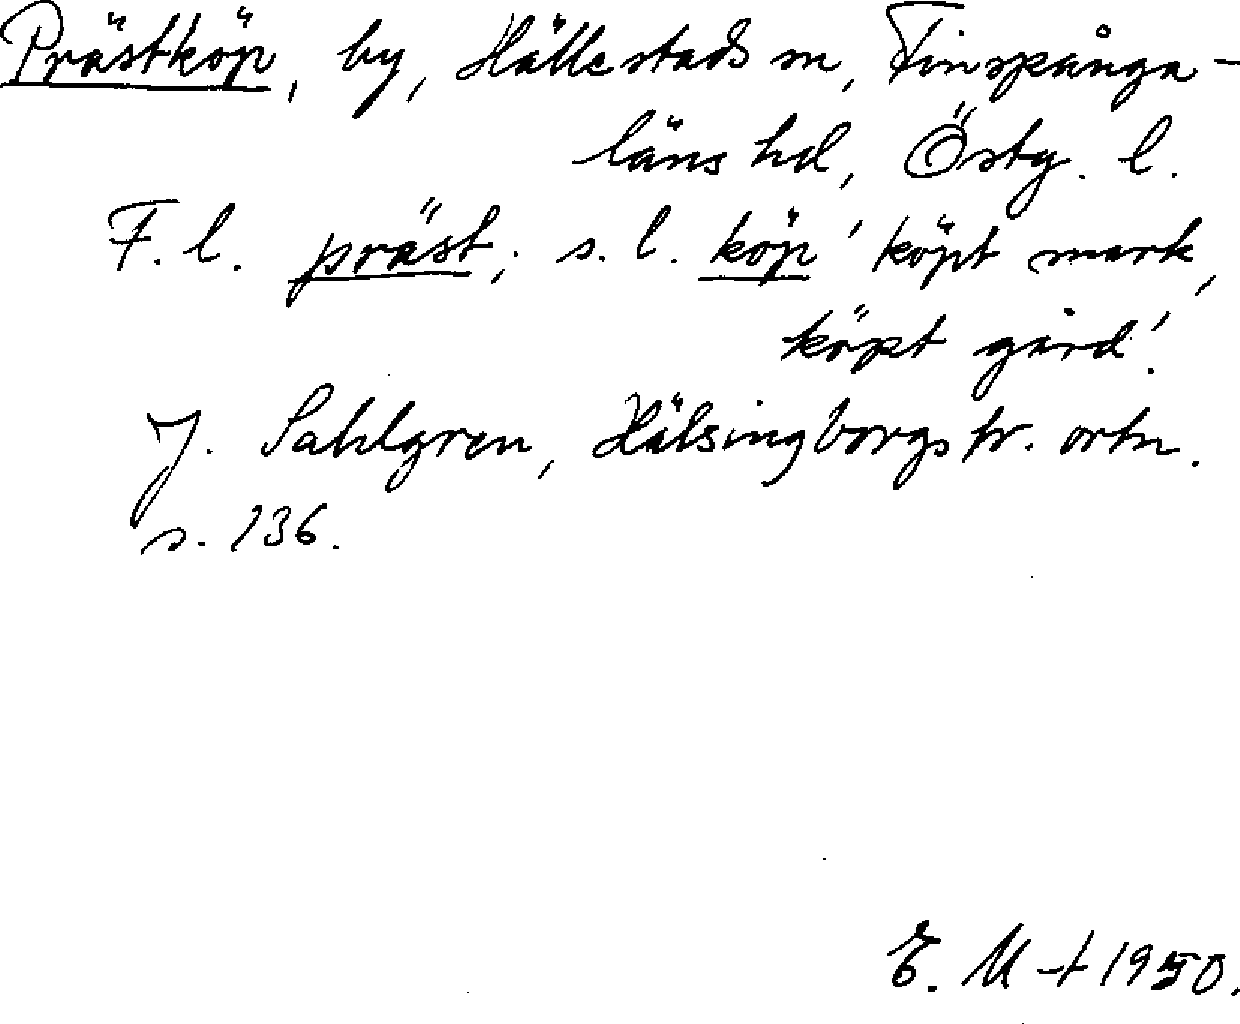 Prästköp, by, Hällestads sn, Finspånga-
läns hd, Östg. l.
F. l. präst; s. l. köp 'köpt mark,
köpt gård'.
J. Sahlgren, Hälsingborgstr. ortn.
s. 136.
E. M-t 1950.